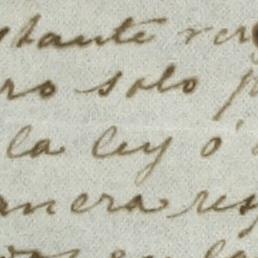 stante ver
ro solo p
la ley ó
anera res